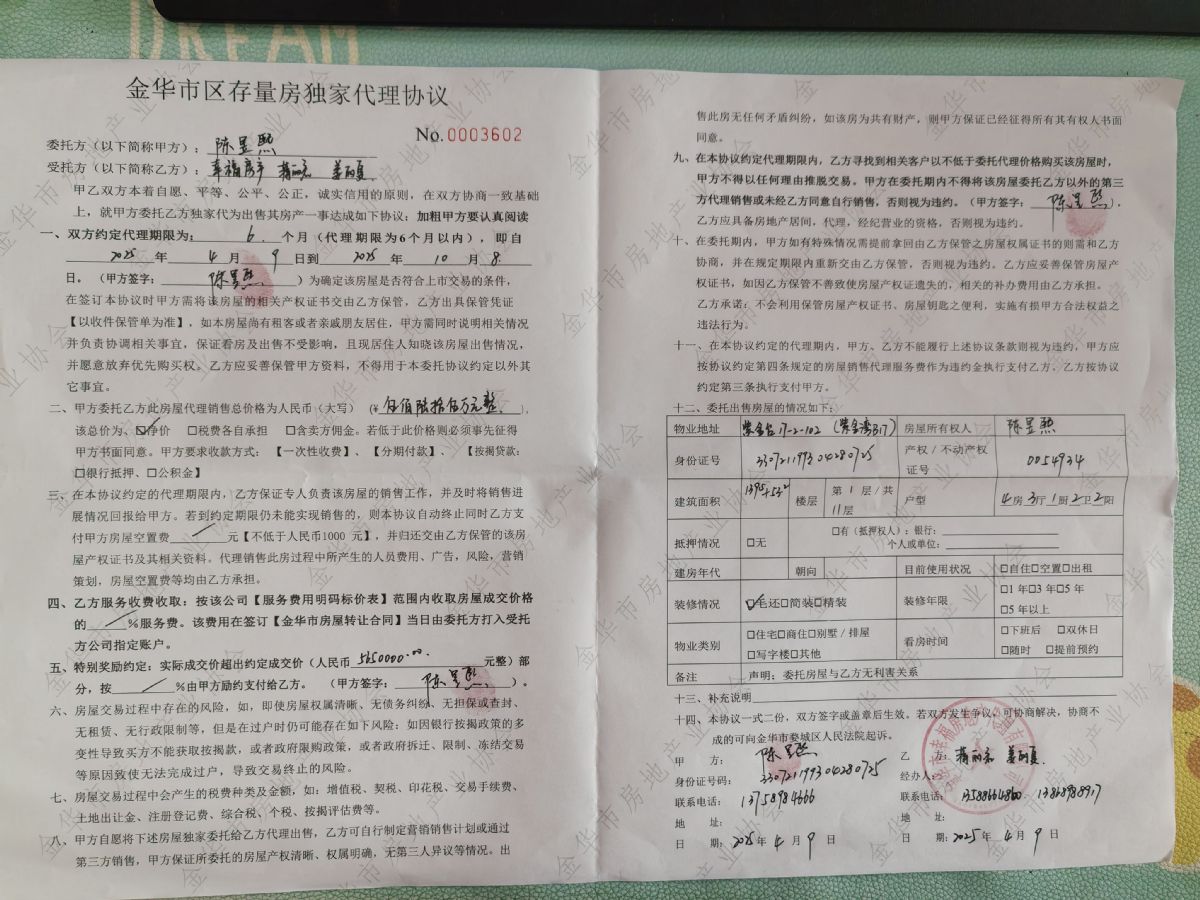 DREAM
金华市区存量房独家代理协议
No.0003602
委托方（以下简称甲方）：陈昱熙
受托方（以下简称乙方）：幸福房产
甲乙双方本着自愿、平等、公平、公正，诚实信用的原则，在双方协商一致基础
上，就甲方委托乙方独家代为出售其房产一事达成如下协议；加粗甲方要认真阅读
一、双方约定代理期限为：6个月（代理期限为6个月以内），即自
2025年4月9日到2025年10月8
日。（甲方签字：陈昱熙）为确定该房屋是否符合上市交易的条件，
在签订本协议时甲方需将该房屋的相关产权证书交由乙方保管，乙方出具保管凭证
【以收件保管单为准】，如本房屋尚有租客或者亲戚朋友居住，甲方需同时说明相关情况
并负责协调相关事宜，保证看房及出售不受影响，且现居住人知晓该房屋出售情况，
并愿意放弃优先购买权。乙方应妥善保管甲方资料，不得用于本委托协议约定以外其
它事宜。
二、甲方委托乙方此房屋代理销售总价格为人民币（大写）（¥伍佰陆拾伍万元整），
该总价为、☑净价 □税费各自承担 □含卖方佣金。若低于此价格则必须事先征得
甲方书面同意。甲方要求收款方式：【一次性收费】、【分期付款】、【按揭贷款：
□银行抵押、□公积金】
三、在本协议约定的代理期限内，乙方保证专人负责该房屋的销售工作，并及时将销售进
展情况回报给甲方。若到约定期限仍未能实现销售的，则本协议自动终止同时乙方支
付甲方房屋空置费／元【不低于人民币1000 元】，并归还交由乙方保管的该房
屋产权证书及其相关资料。代理销售此房过程中所产生的人员费用、广告，风险，营销
策划，房屋空置费等均由乙方承担。
四、乙方服务收费收取：按该公司【服务费用明码标价表】范围内收取房屋成交价格
的／%服务费。该费用在签订【金华市房屋转让合同】当日由委托方打入受托
方公司指定账户。
五、特别奖励约定：实际成交价超出约定成交价（人民币5650000.00元整）部
分，按／%由甲方励约支付给乙方。（甲方签字：陈昱熙）。
六、房屋交易过程中存在的风险，如，即使房屋权属清晰、无债务纠纷、无担保或查封、
无租赁、无行政限制等，但是在过户时仍可能存在如下风险：如因银行按揭政策的多
变性导致买方不能获取按揭款，或者政府限购政策，或者政府拆迁、限制、冻结交易
等原因致使无法完成过户，导致交易终止的风险。
七、房屋交易过程中会产生的税费种类及金额，如：增值税、契税、印花税、交易手续费、
土地出让金、注册登记费、综合税、个税、按揭评估费等。
八、甲方自愿将下述房屋独家委托给乙方代理出售，乙方可自行制定营销销售计划或通过
第三方销售，甲方保证所委托的房屋产权清晰、权属明确，无第三人异议等情况。出
售此房无任何矛盾纠纷，如该房为共有财产，则甲方保证已经征得所有其有权人书面
同意。
九、在本协议约定代理期限内，乙方寻找到相关客户以不低于委托代理价格购买该房屋时，
甲方不得以任何理由推脱交易。甲方在委托期内不得将该房屋委托乙方以外的第三
方代理销售或未经乙方同意自行销售，否则视为违约。（甲方签字：陈昱熙），
乙方应具备房地产居间，代理，经纪营业的资格，否则视为违约。
十、在委托期内，甲方如有特殊情况需提前拿回由乙方保管之房屋权属证书的则需和乙方
协商，并在规定期限内重新交由乙方保管，否则视为违约。乙方应妥善保管房屋产
权证书，如因乙方保管不善致使房屋产权证遗失的，相关的补办费用由乙方承担。
乙方承诺：不会利用保管房屋产权证书、房屋钥匙之便利，实施有损甲方合法权益之
违法行为。
十一、在本协议约定的代理期内，甲方、乙方不能履行上述协议条款则视为违约，甲方应
按协议约定第四条规定的房屋销售代理服务费作为违约金执行支付乙方。乙方按协议
约定第三条执行支付甲方。
十二、委托出售房屋的情况如下：
物业地址 紫金台17-2-102（紫金湾317） 房屋所有权人 陈昱熙
身份证号 330721199304280725 产权／不动产权证号 0054934
建筑面积 楼层 第1层／共11层 户型 4房3厅1厨2卫2阳
抵押情况 □无 □有（抵押权人）：银行：
个人或单位：
建房年代 朝向 目前使用状况 □自住□空置□出租
装修情况 ☑毛还□简装□精装 装修年限 □1年□3年□5年
□5年以上
物业类别 □住宅□商住□别墅／排屋 看房时间 □下班后 □双休日
□写字楼□其他 □随时 □提前预约
备注 声明：委托房屋与乙方无利害关系
十三、补充说明
十四、本协议一式二份，双方签字或盖章后生效。若双方发生争议，可协商解决，协商不
成的可向金华市婺城区人民法院起诉。
甲 方：陈昱熙 乙 方：
身份证号码：330721199304280725 经办人：
联系电话：13758984666 联系电话：13588664860. 13868988917
地 址： 地 址：
日 期：2025年4月9日 日 期：2025年4月9日